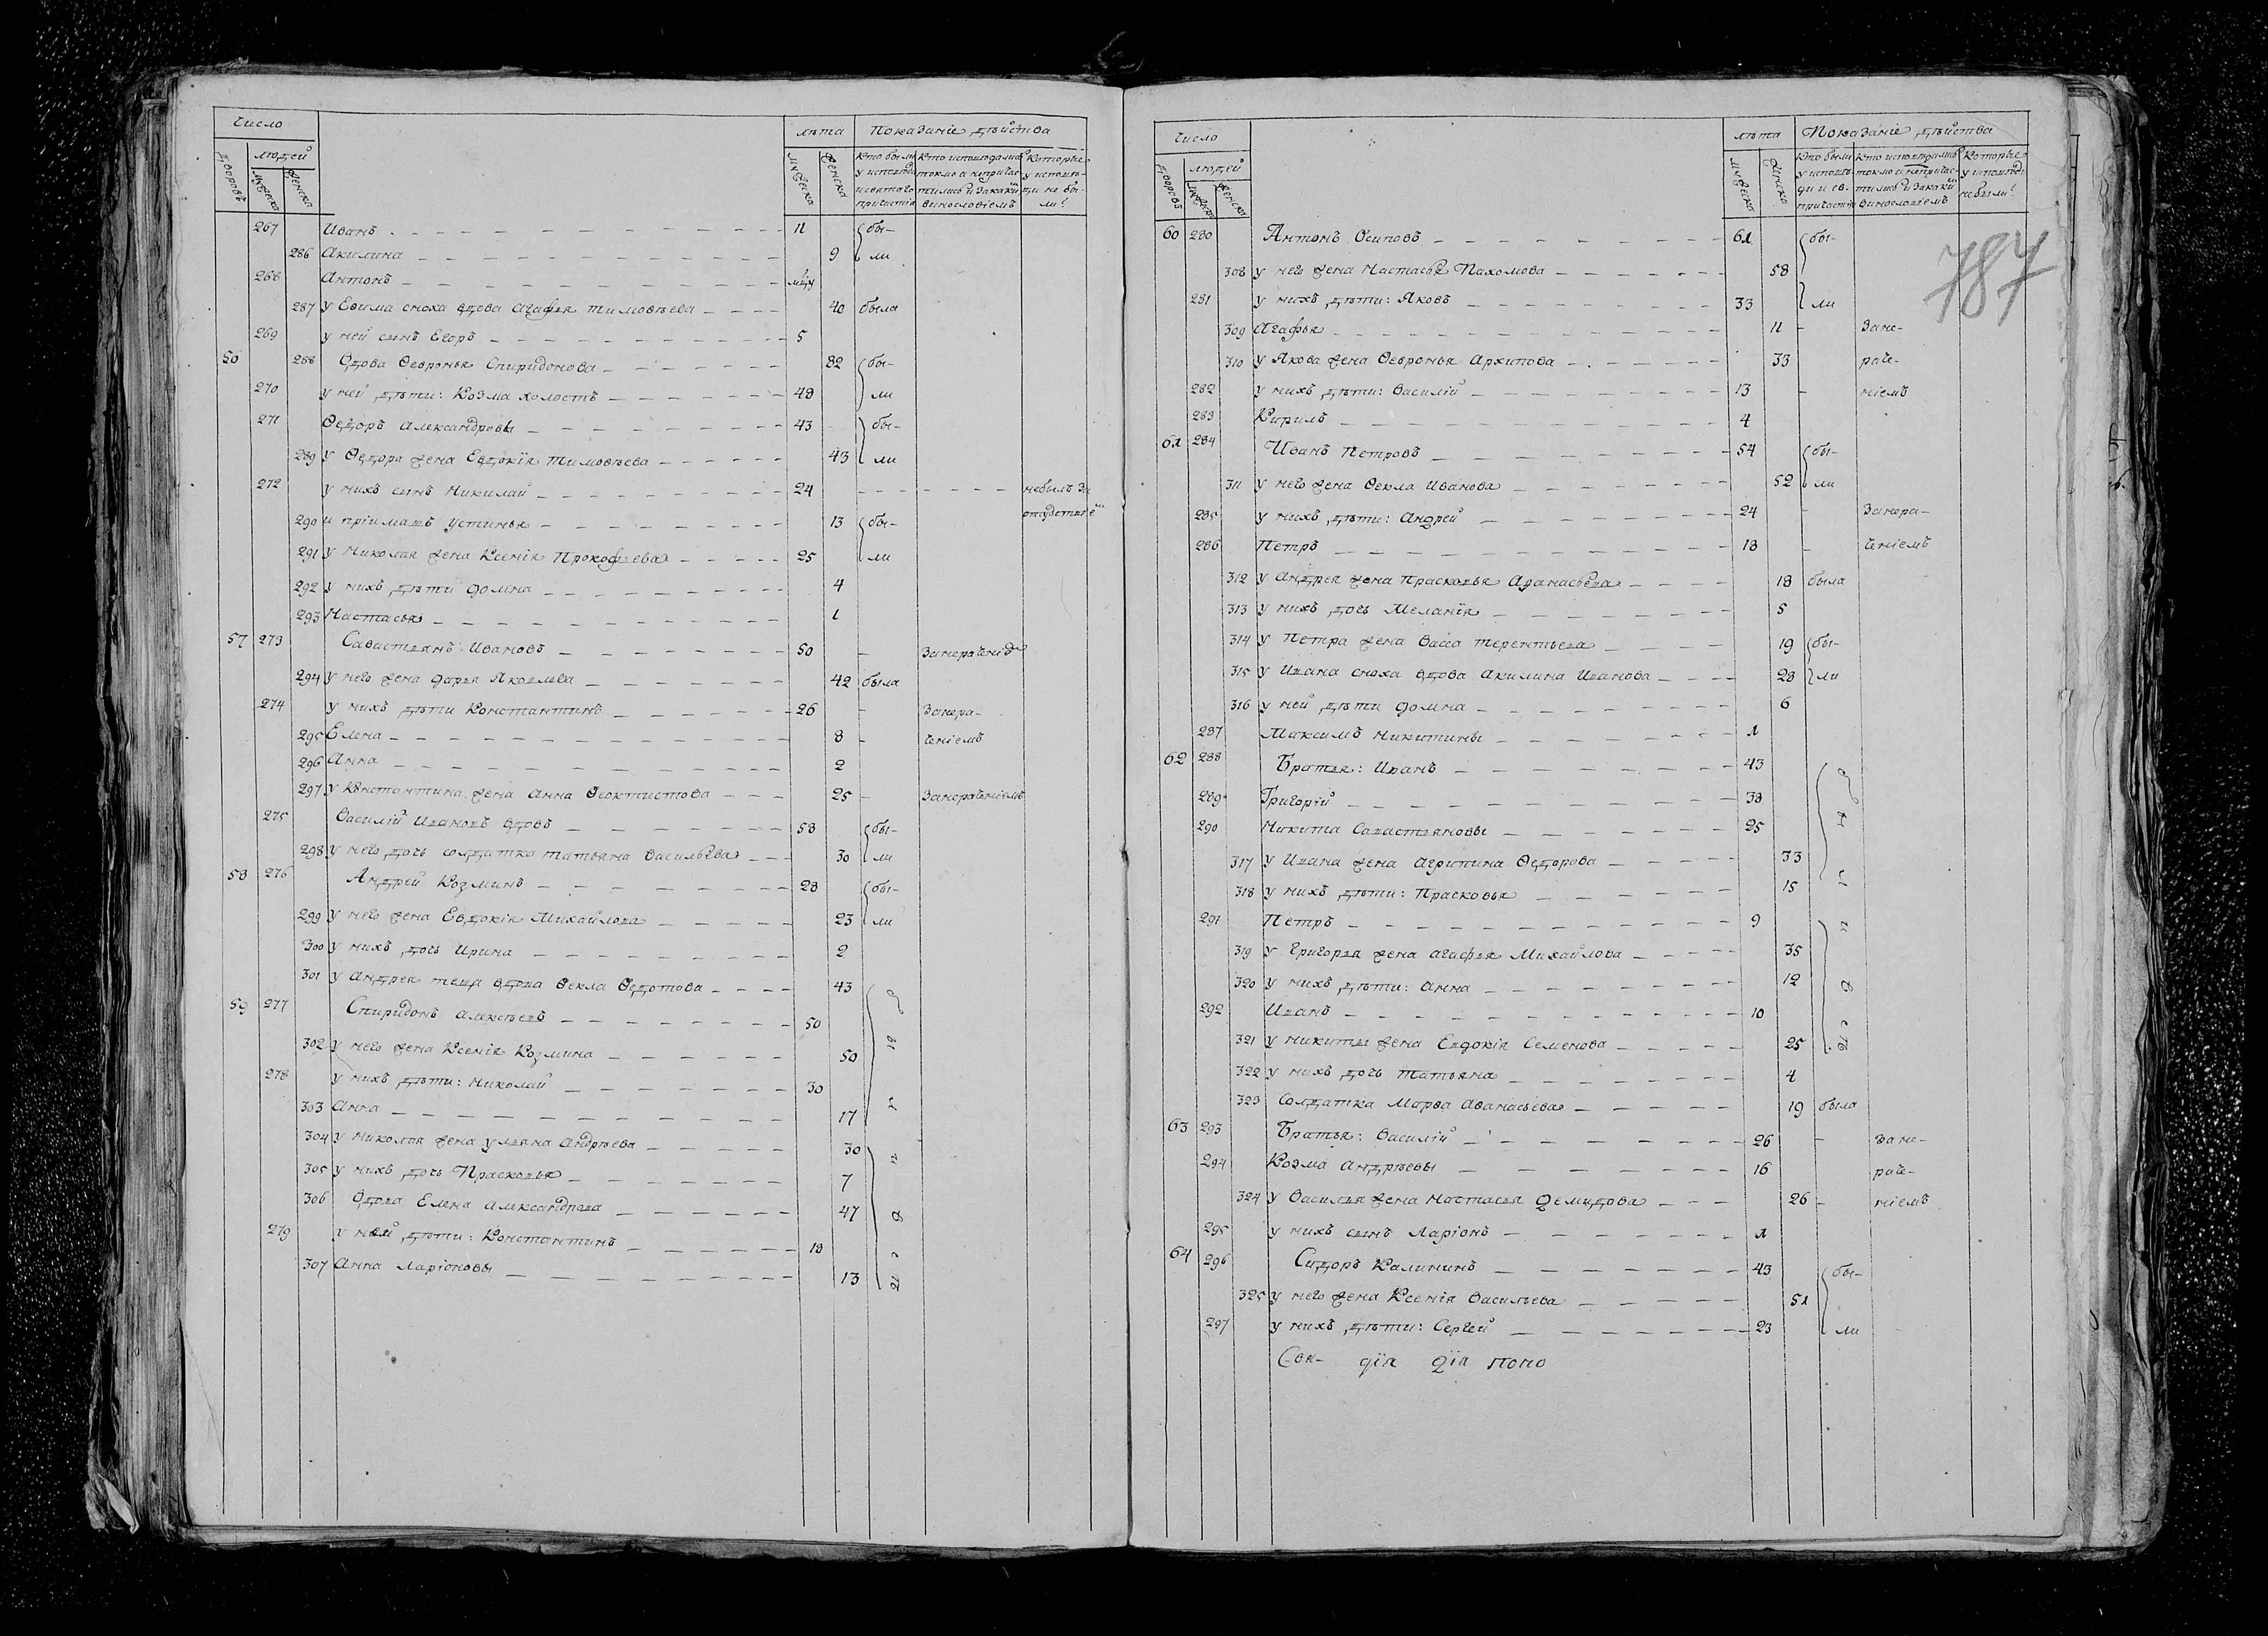 Число
лѣта Показанїе дѣйства
дворовъ людей
мужеска женска
мужеска женска
кто были у исповѣди и святаго причастїя
кто исповѣдались токмо а непричастились и закакимъ винословїемъ
которые у исповѣди не были
267 Иванъ 11 бы-
286 Акилина 9 ли
268 Антонъ
287 у Ефима сноха вдова Агафья Тимофѣева 40 была
269 у ней сынъ Егоръ 5
56 288 Вдова Февронья Спиридонова 82 бы-
270 у ней дѣти: Козма холостъ 48 ли
271 Федоръ Александровы 43 бы-
289 у Федора жена Евдокїя Тимофѣева 43 ли
272 у нихъ сынъ Николай 24 небылъ за
290 и прїимашъ Устинья 13 бы- отлучкою
291 у Николая жена Ксенїя Прокофьева 25 ли
292 у нихъ дѣти Домна 4
293 Настасья 1
57 273 Савастьянъ Ивановъ 50 Занераченїе
294 у него жена Дарья Яковлева 42 была
274 у нихъ дѣти Константинъ 26 Занера-
295 Елена 8 ченїемъ
296 Анна 2
297 у Константина жена Анна Феоктистова 25 Занераченїемъ
275 Василїй Ивановъ вдовъ 58 бы-
298 у него дочь солдатка Татьяна Васильева 30 ли
58 276 Андрей Козминъ 28 бы-
299 у него жена Евдокїя Михайлова 23 ли
300 у нихъ дочь Ирина 2
301 у Андрея теща вдова Фекла Федотова 43
59 277 Спиридонъ Алексѣевъ 50
302 у него жена Ксенїя Козмина 50
278 у нихъ дѣти: Николай 30
303 Анна 17
304 у Николая жена Ульяна Андрѣева 30
305 у нихъ дочь Прасковья 7
306 Вдова Елена Александрова 47
279 у ней дѣти: Константинъ 18
307 Анна Ларїоновы 13
787
Число
лѣта Показанїе дѣйства
дворовъ людей
мужеска женска
мужеска женска
кто были у исповѣди и св. причастїя
кто исповѣдались токмо а непричастились и закакимъ винословїемъ
которые у исповѣди небыли
60 280 Антонъ Осиповъ 61 бы-
308 у него жена Настасья Пахомова 58
281 у нихъ дѣти: Яковъ 33 ли
309 Агафья 11 Зане-
310 у Якова жена Февронья Архипова 33 раче-
282 у нихъ дѣти: Василїй 13 нїемъ
283 Кирилъ 4
61 284 Иванъ Петровъ 54 бы-
311 у него жена Фекла Иванова 52 ли
285 у нихъ дѣти: Андрей 24 Занера-
286 Петръ 18 ченїемъ
312 у Андрея жена Прасковья Афанасьева 18 была
313 у нихъ дочь Меланїя 5
314 у Петра жена Васса Терентьева 19 бы-
315 у Ивана сноха вдова Акилина Иванова 28 ли
316 у ней дѣти Домна 6
287 Максимъ Никитины 1
62 288 Братья: Иванъ 43
289 Григорїй 38
290 Никита Савастьяновы 25
317 у Ивана жена Агрипина Федорова 33
318 у нихъ дѣти: Прасковья 15
291 Петръ 9
319 у Григорья жена Агафья Михайлова 35
320 у нихъ дѣти: Анна 12
292 Иванъ 10
321 у Никиты жена Евдокїя Семенова 25
322 у нихъ дочь Татьяна 4
323 Солдатка Марфа Афанасьева 19 была
63 293 Братья: Василїй 26 Зане-
294 Козма Андрѣевы 16 раче-
324 у Василья жена Настасья Демидова 26 нїемъ
295 у нихъ сынъ Ларїонъ 1
64 296 Сидоръ Калининъ 43 бы-
325 у него жена Ксенїя Васильева 51
297 у нихъ дѣти: Сергей 23 ли